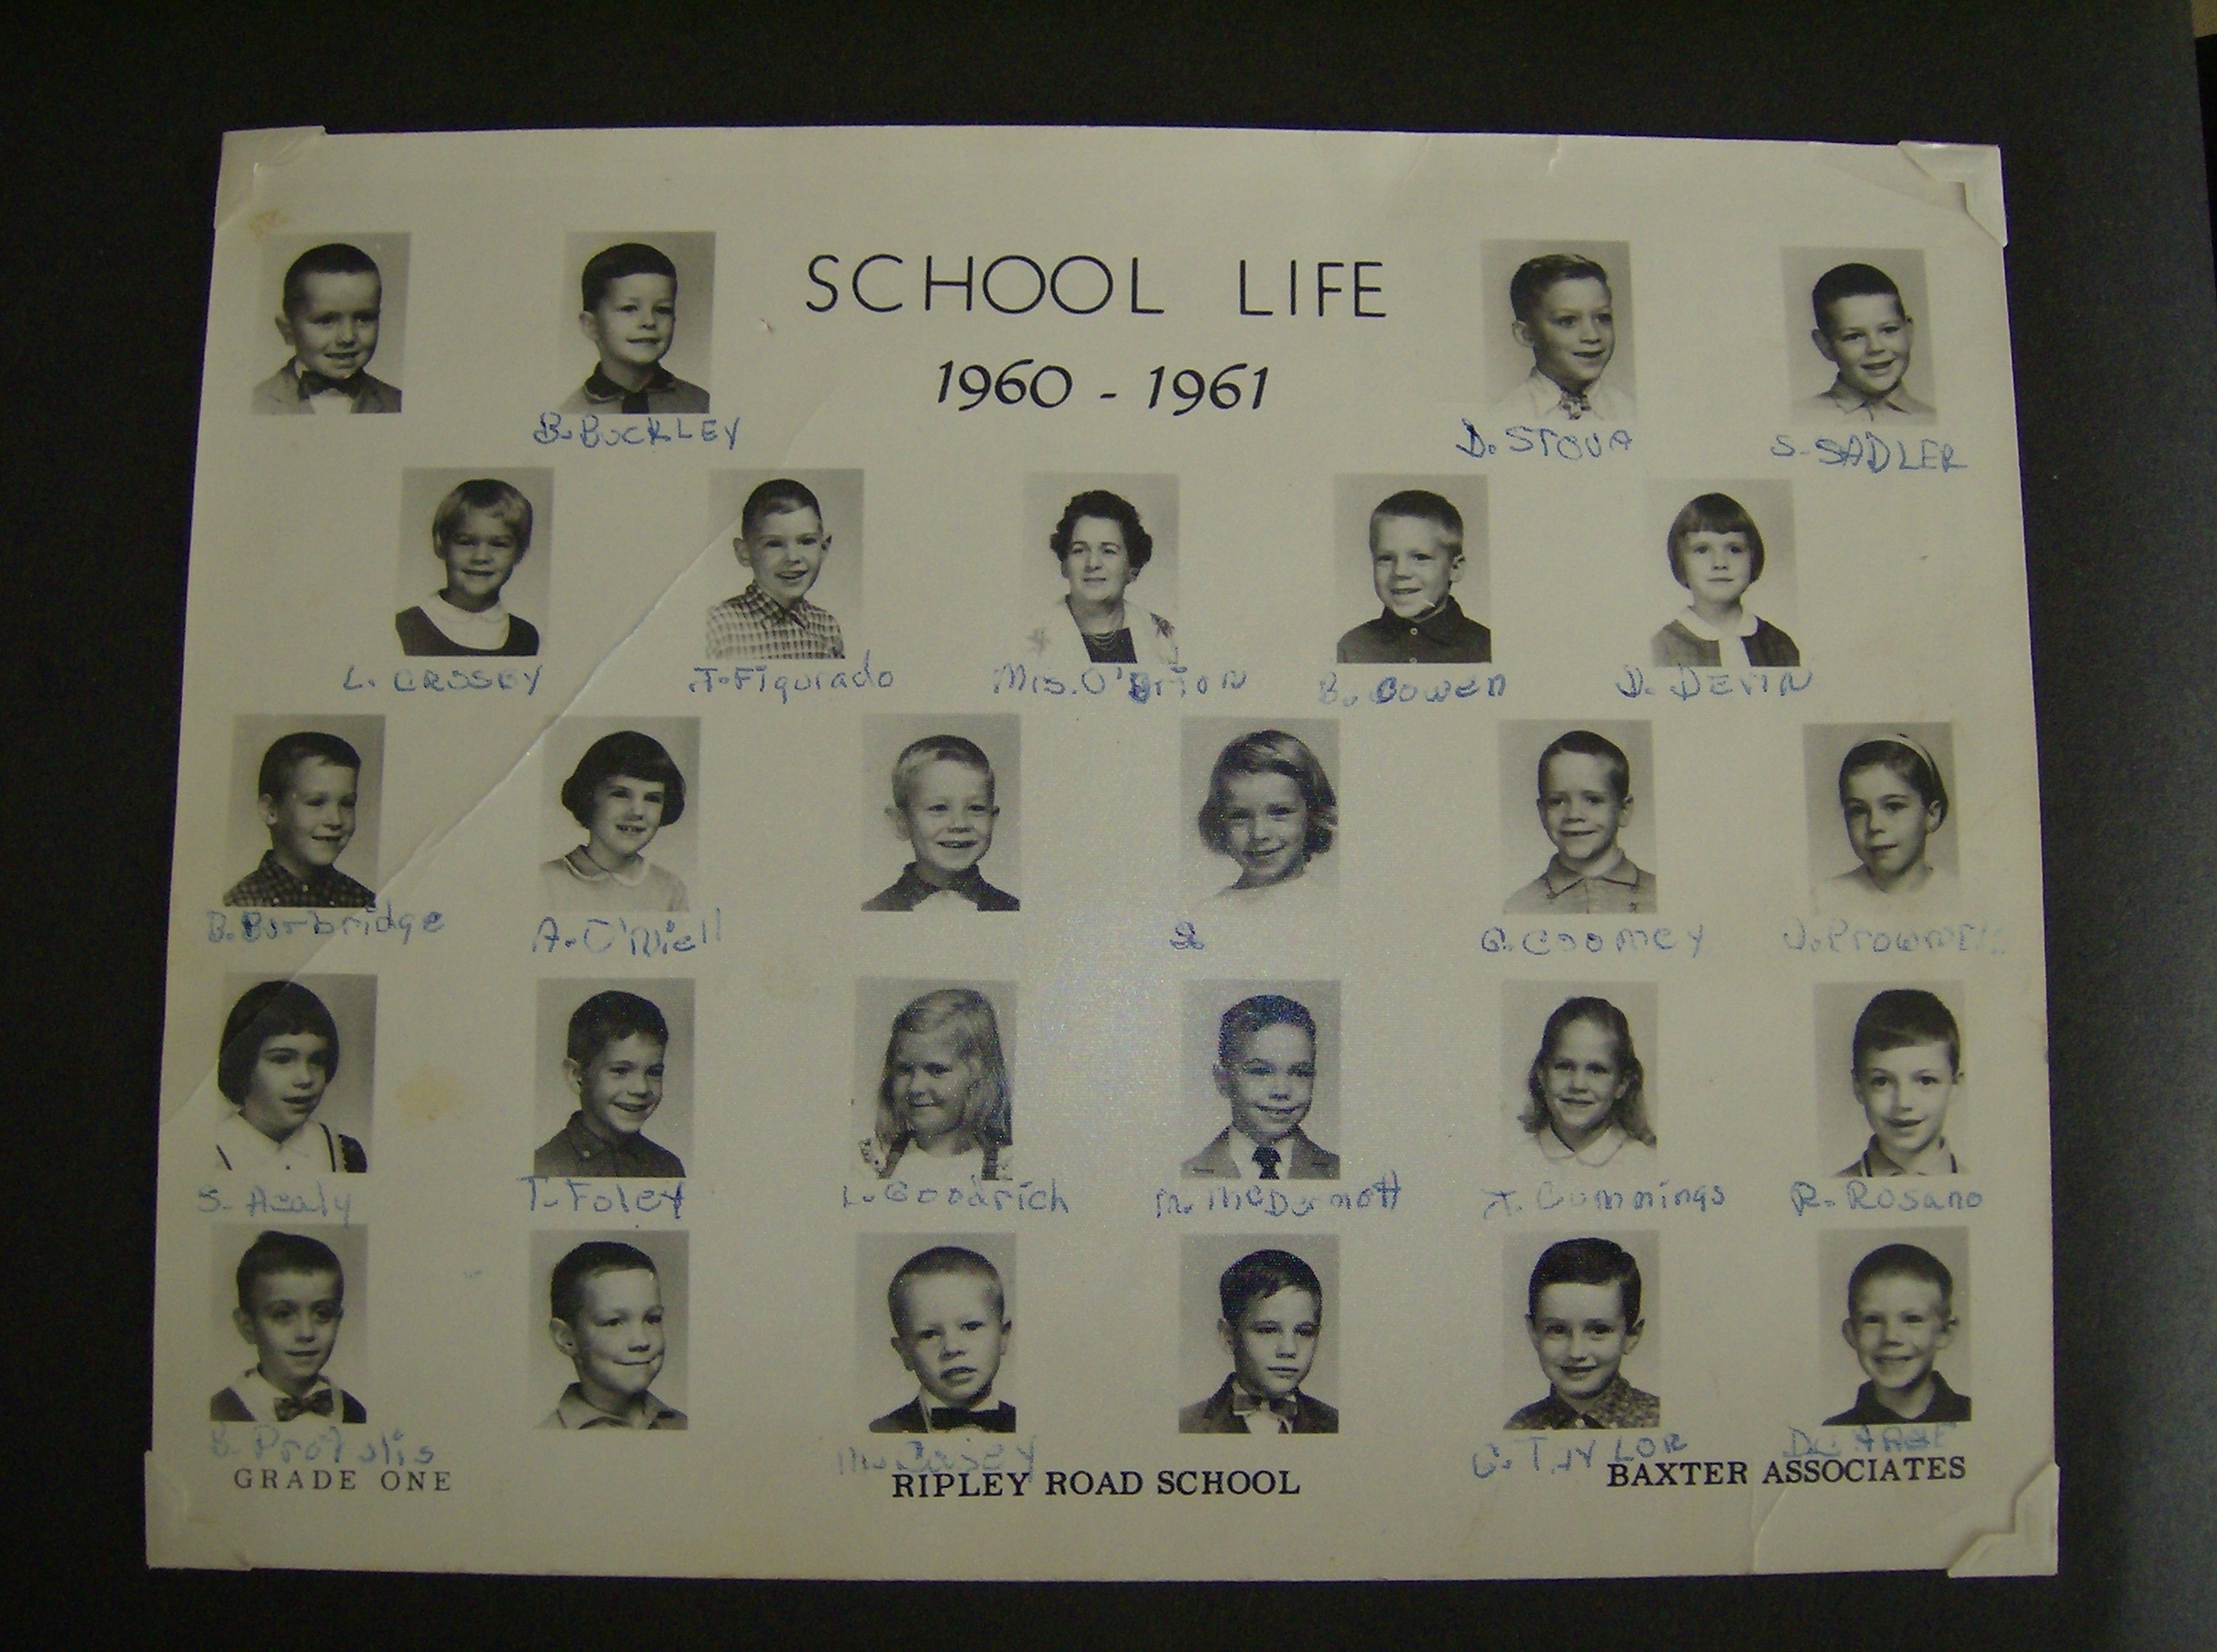 SCHOOL LIFE
1960 - 1961
B. BUCKLEY
D. STOUA
S. SADLER
L. CROSBY
T. Figurado
Mrs. O'Brion
B. Cowen
D. DEVIN
B. Burbridge
A. O'Niell
G. Coomey
S. Healy
T. Foley
L. Goodrich
M. McDermott
Cummings
R. Rosano
B.
M. Casey
C. TAYLOR
GRADE ONE
RIPLEY ROAD SCHOOL
BAXTER ASSOCIATES